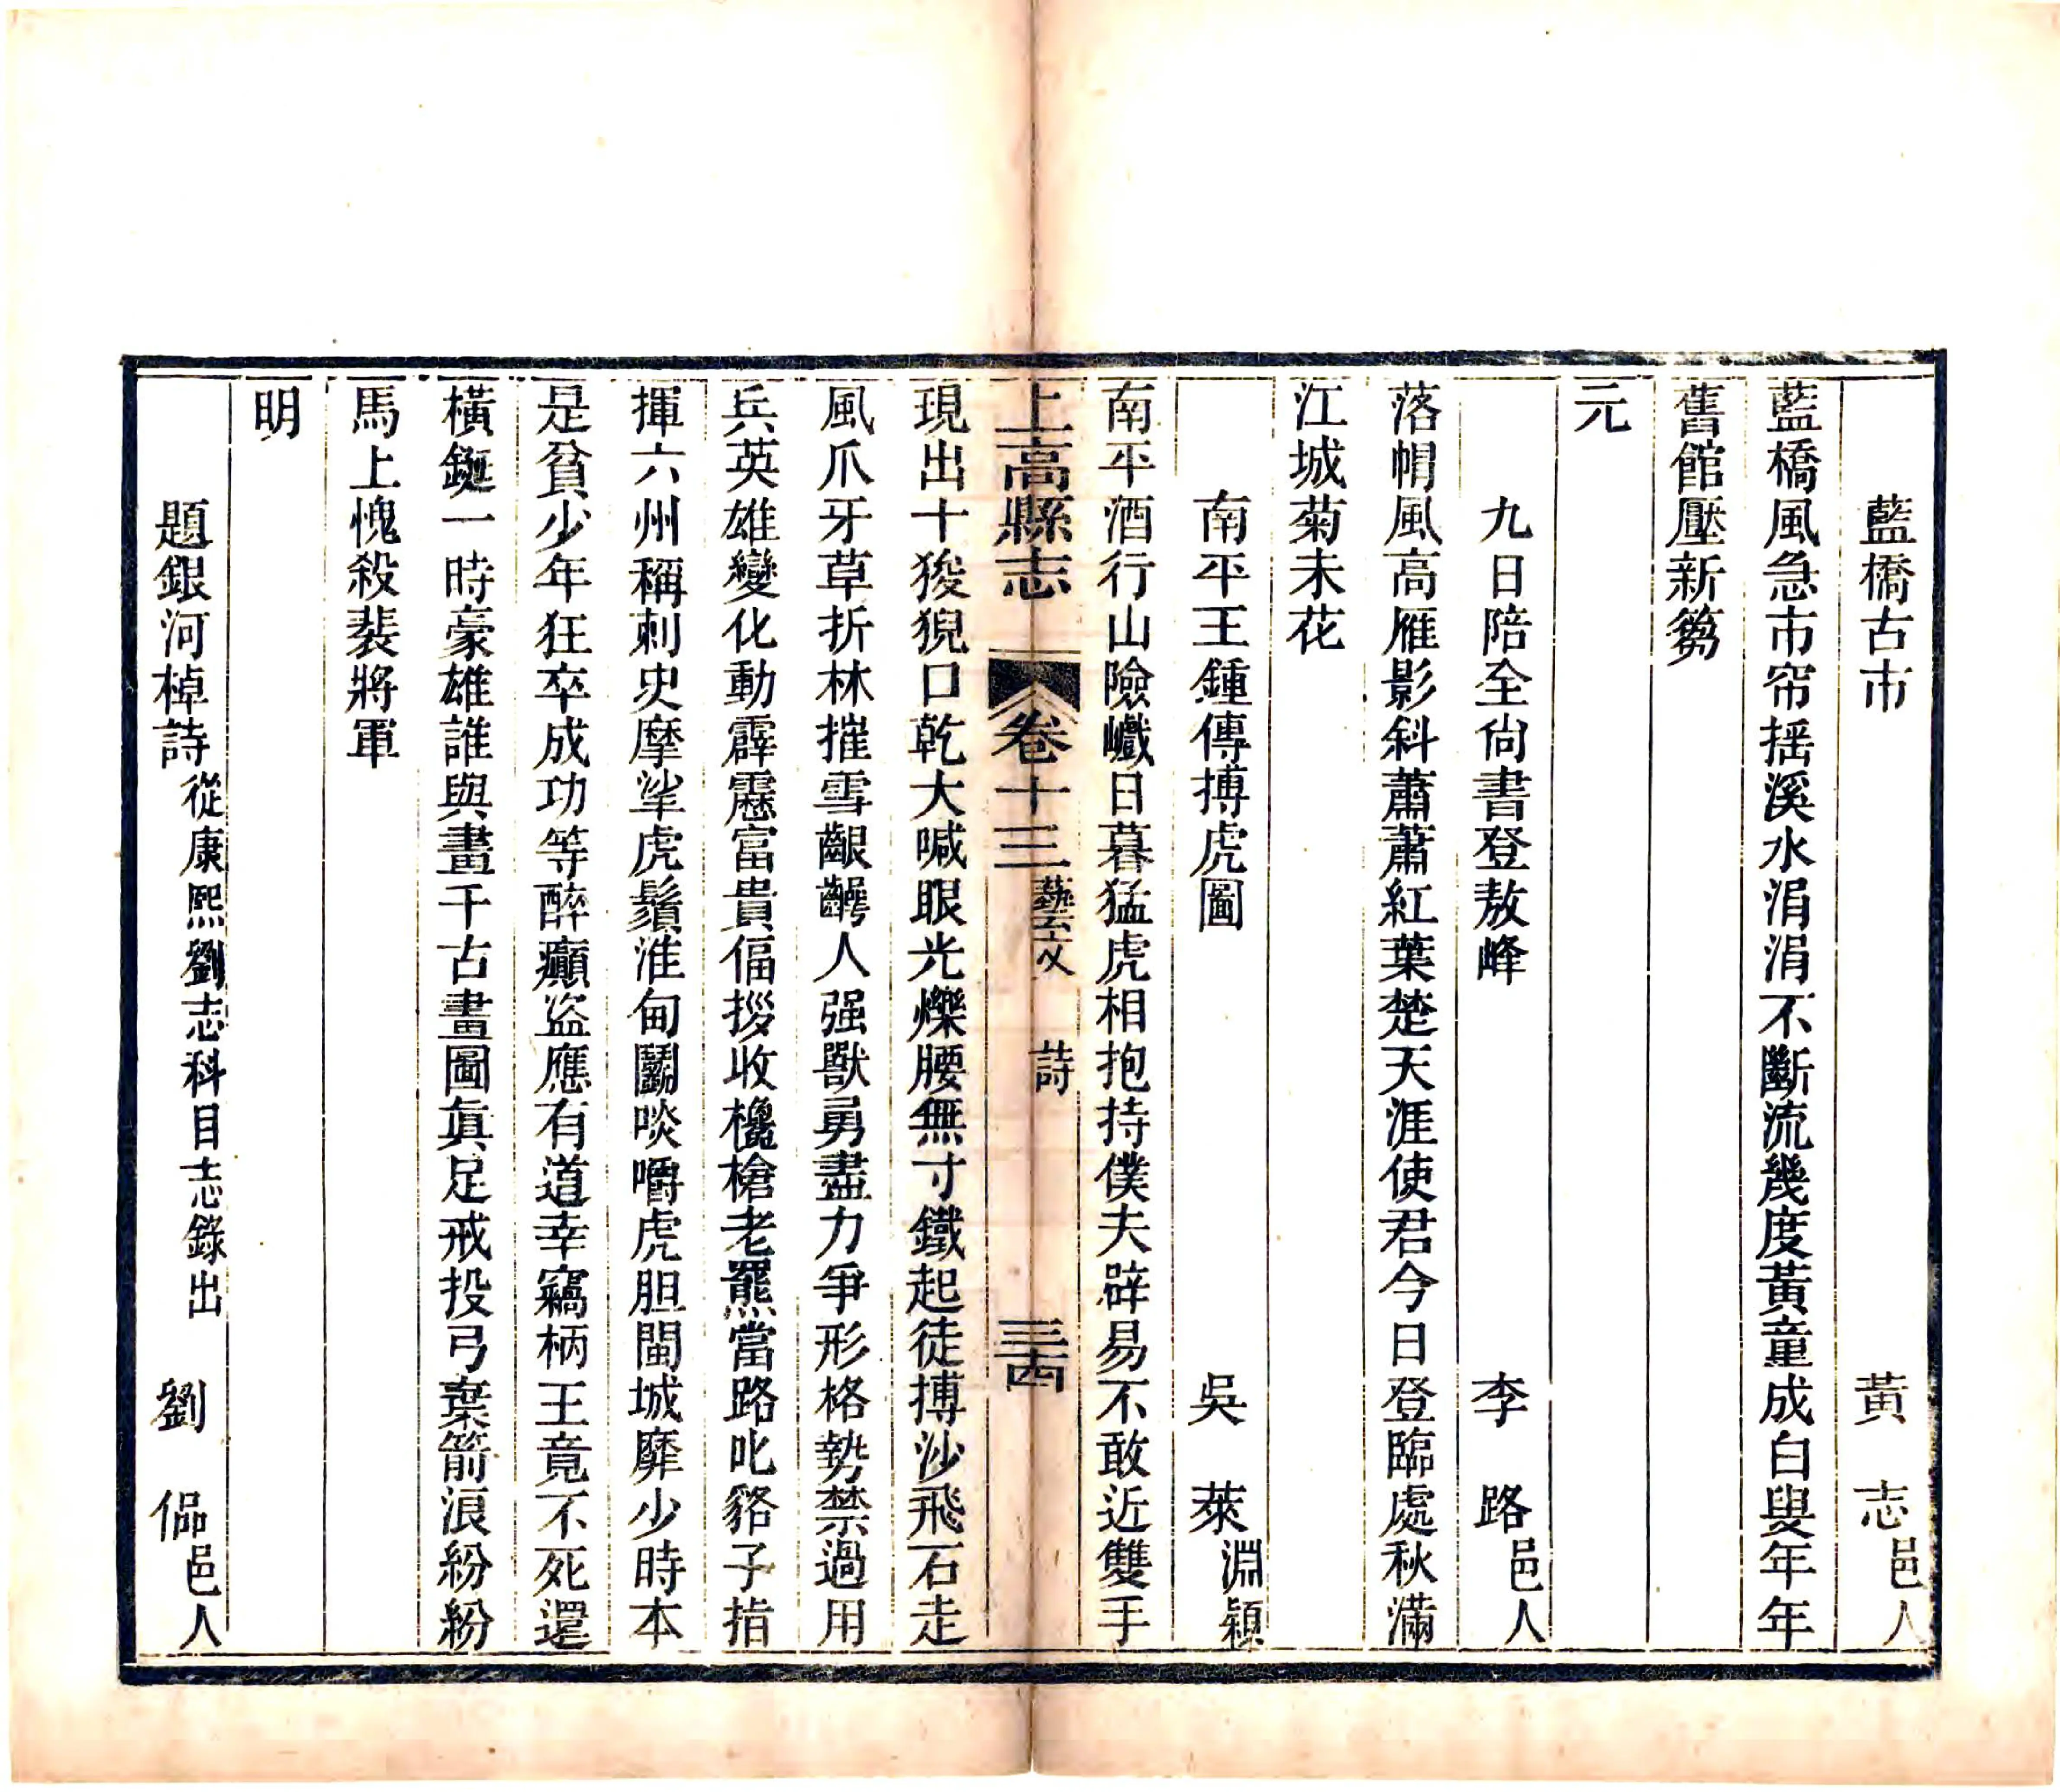 藍橋古市　黃　志邑人
藍橋風急市帘揺溪水涓涓不斷流幾度黃童成白叟年年
舊館壓新芻
元
九日陪全尙書登敖峰　李　路邑人
落帽風高雁影斜蕭蕭紅葉楚天涯使君今日登臨處秋滿
江城菊未花
南平王鍾傳搏虎圖　吳　萊淵穎
南平酒行山險巇日暮猛虎相抱持僕夫辟易不敢近雙手
上高縣志　卷十三　藝文　詩　三十四
現出十狻猊口乾大喊眼光爍腰無寸鐵起徒搏沙飛石走
風爪牙草折林摧雪齦齶人强獸勇盡力爭形格勢禁過用
兵英雄變化動霹靂富貴偪拶收欃槍老羆當路叱貉子指
揮六州稱刺史摩挲虎鬚淮甸鬭啖嚼虎胆閩城靡少時本
是貧少年狂卒成功等醉癲盜應有道幸竊柄王竟不死還
橫鋋一時豪雄誰與畫千古畫圖眞足戒投弓棄箭浪紛紛
馬上愧殺裴將軍
明
題銀河棹詩從康熙劉志科目志錄出　劉　侷邑人